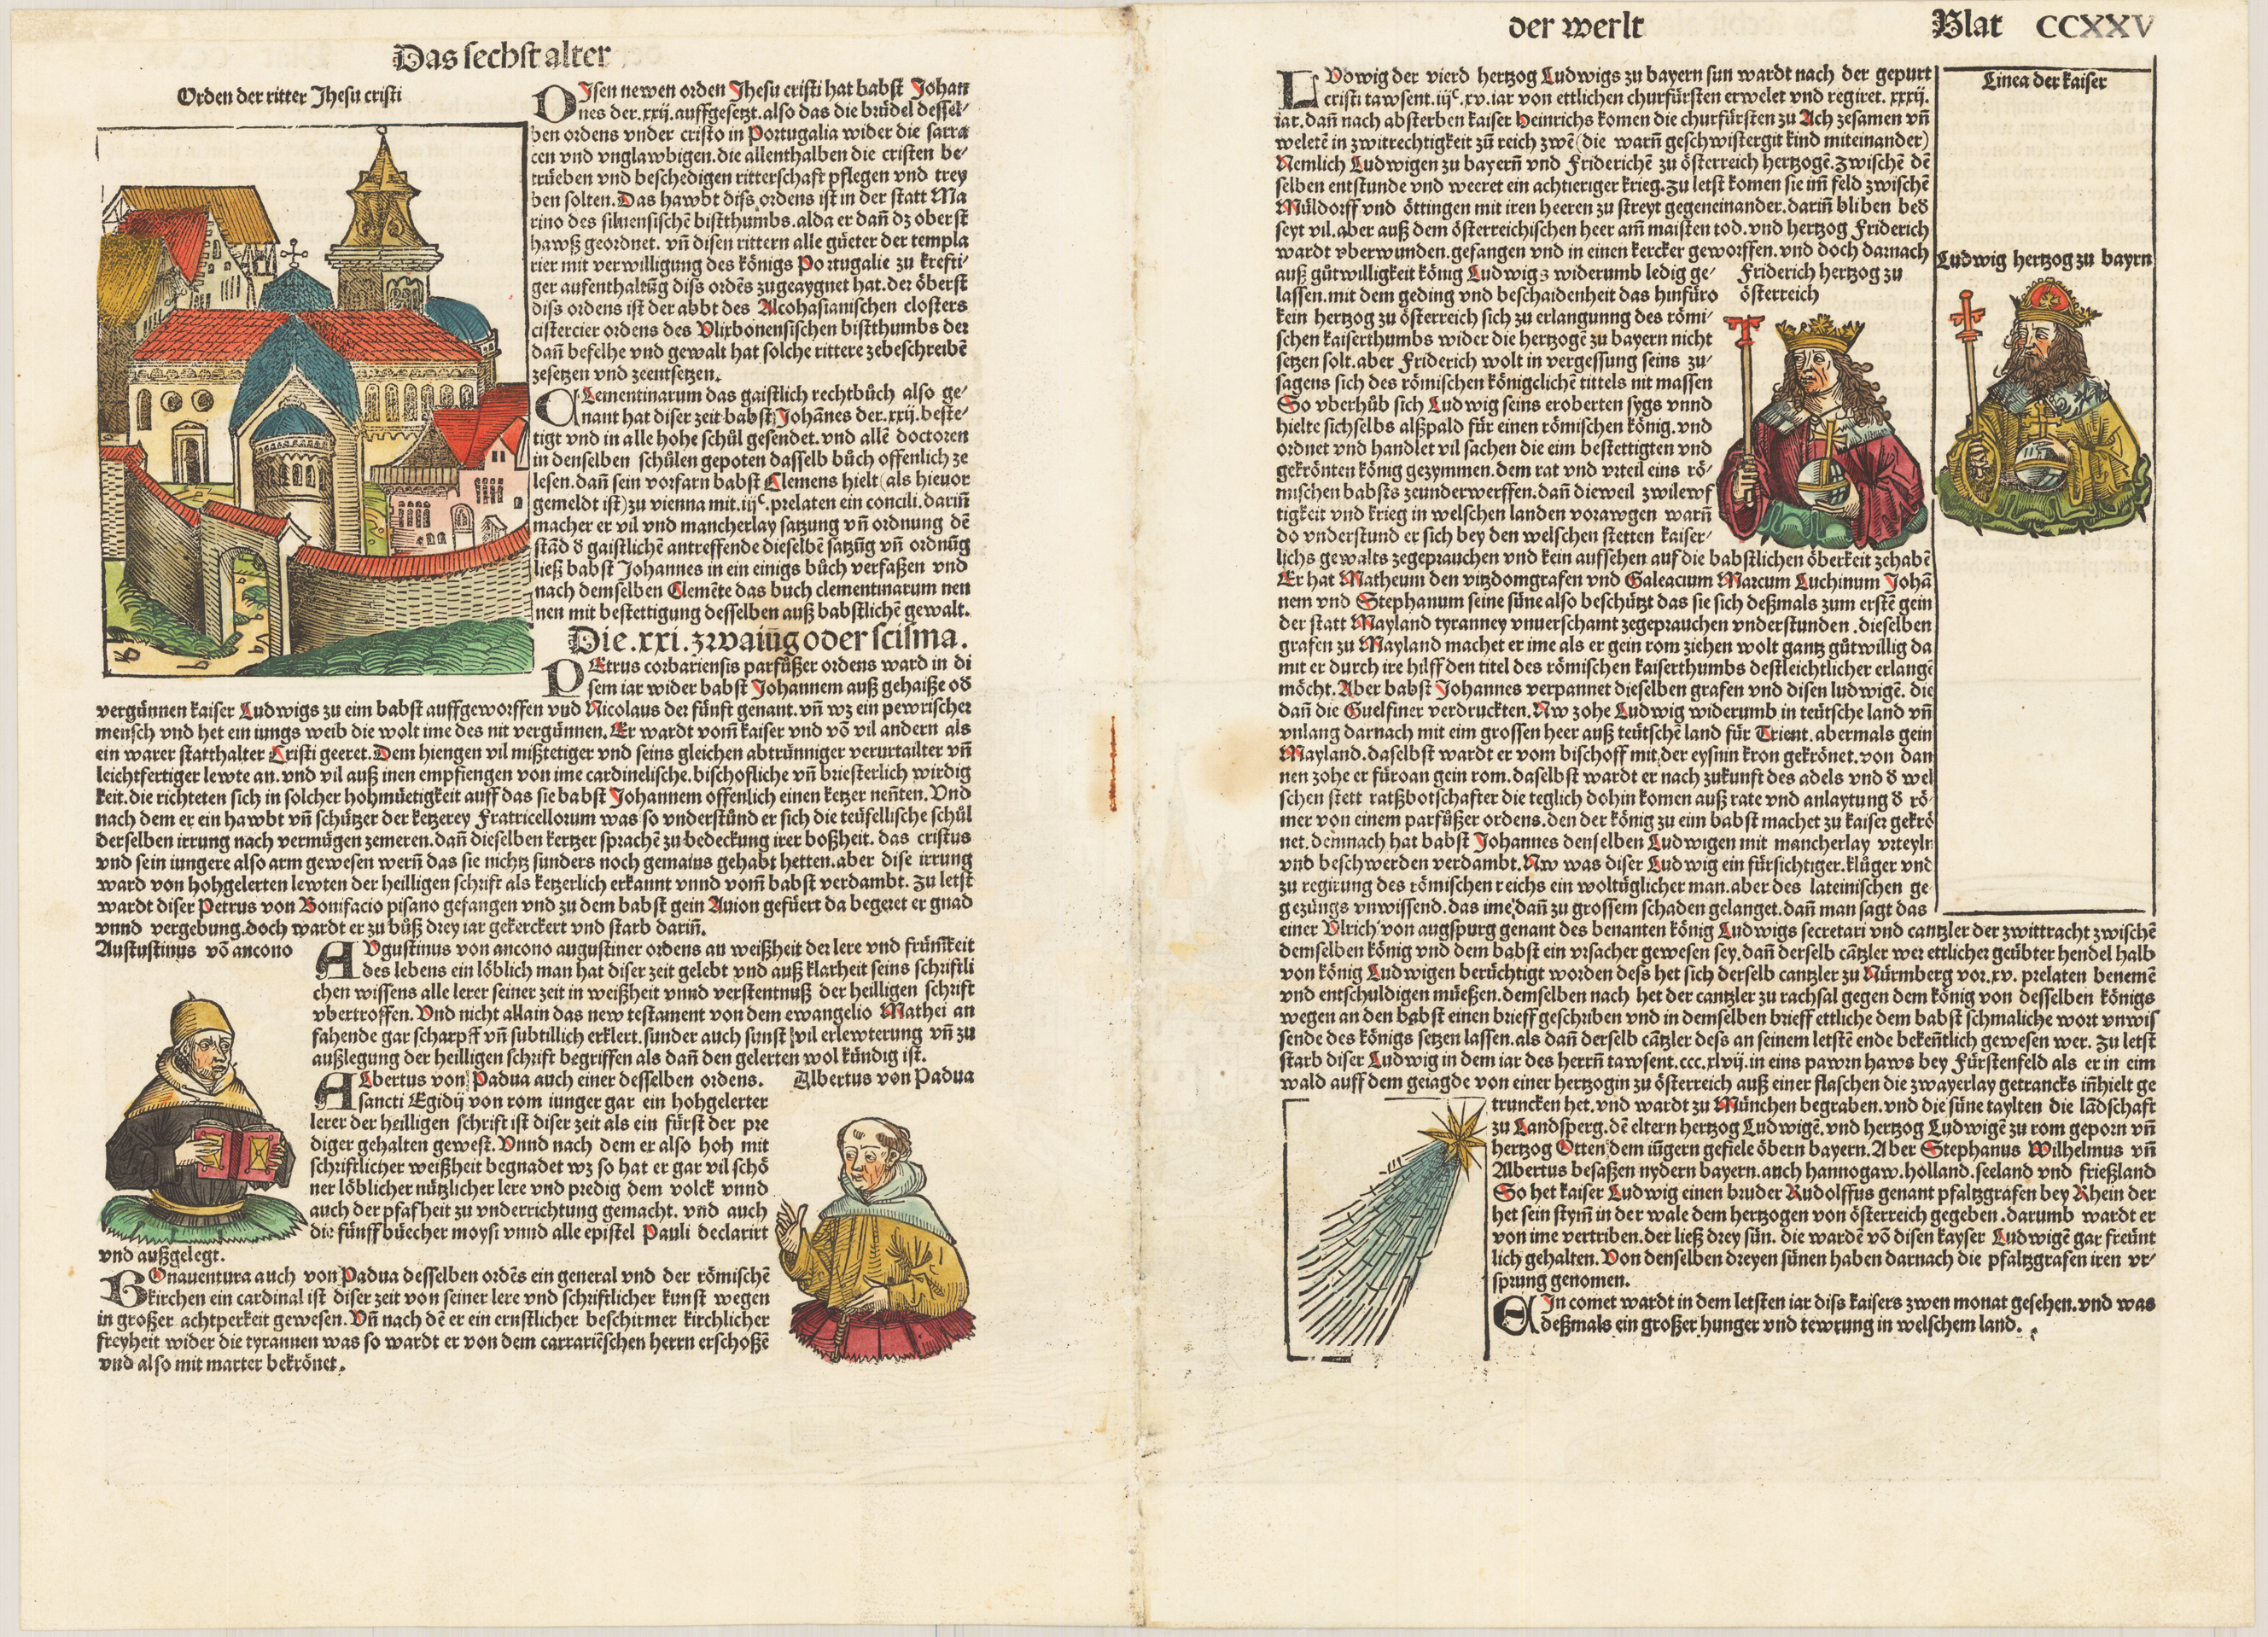 Das sechst alter
Orden der ritter Jhesu cristi
DJsen newen orden Jhesu cristi hat babst Johan
nes der .xxij. auffgesetzt. also das die brüdel dessel-
ben ordens vnder cristo in Portugalia wider die sarra
cen vnd vnglawbigen. die allenthalben die cristen be-
trüeben vnd beschedigen ritterschaft pflegen vnd trey
ben solten. Das hawbt diss ordens ist in der statt Ma
rino des siluensischē bistthumbs. alda er dañ dz oberst
hawß geordnet. vñ disen rittern alle güeter der templa
rier mit verwilligung des königs Portugalie zu krefti-
ger aufenthaltūg diss ordēs zugeaygnet hat. der öberst
diss ordens ist der abbt des Alcohasianischen closters
cistercier ordens des Vlixbonensischen bistthumbs der
dañ befelhe vnd gewalt hat solche rittere zebeschreibē
zesetzen vnd zeentsetzen.
CLementinarum das gaistlich rechtbůch also ge-
nant hat diser zeit babst Johānes der .xxij. beste-
tigt vnd in alle hohe schůl gesendet. vnd allē doctoren
in denselben schůlen gepoten dasselb bůch offenlich ze
lesen. dañ sein vorfarn babst Clemens hielt (als hieuor
gemeldt ist) zu vienna mit .iijᶜ. prelaten ein concili. dariñ
macher er vil vnd mancherlay satzung vñ ordnung dē
stād ð gaistlichē antreffende dieselbē satzūg vñ ordnūg
ließ babst Johannes in ein einigs bůch verfaßen vnd
nach demselben Clemēte das buch clementinarum nen
nen mit bestettigung desselben auß babstlichē gewalt.
Die .xxi. zwaiūg oder scisma.
PEtrus corbariensis parfůßer ordens ward in di
sem iar wider babst Johannem auß gehaiße oð
vergünnen kaiser Ludwigs zu eim babst auffgeworffen vnd Nicolaus der fünft genant. vñ wz ein pewrischer
mensch vnd het ein iungs weib die wolt ime des nit vergünnen. Er wardt vom̄ kaiser vnd vō vil andern als
ein warer statthalter Cristi geeret. Dem hiengen vil mißtetiger vnd seins gleichen abtrünniger verurtailter vñ
leichtfertiger lewte an. vnd vil auß inen empfiengen von ime cardinelische. bischofliche vñ briesterlich wirdig
keit. die richteten sich in solcher hohmüetigkeit auff das sie babst Johannem offenlich einen ketzer neñten. Vnd
nach dem er ein hawbt vñ schützer der ketzerey Fratricellorum was so vnderstůnd er sich die teüfellische schůl
derselben irrung nach vermügen zemeren. dañ dieselben kertzer sprachē zu bedeckung irer boßheit. das cristus
vnd sein iungere also arm gewesen werñ das sie nichtz sunders noch gemains gehabt hetten. aber dise irrung
ward von hohgelerten lewten der heilligen schrift als ketzerlich erkannt vnnd vom̄ babst verdambt. Zu letst
wardt diser Petrus von Bonifacio pisano gefangen vnd zu dem babst gein Auion gefüert da begeret er gnad
vnnd vergebung. doch wardt er zu bůß drey iar gekerckert vnd starb dariñ.
Austustinus vō ancono
AVgustinus von ancono augustiner ordens an weißheit der lere vnd frūm̄keit
des lebens ein löblich man hat diser zeit gelebt vnd auß klarheit seins schriftli
chen wissens alle lerer seiner zeit in weißheit vnnd verstentnuß der heilligen schrift
vbertroffen. Vnd nicht allain das new testament von dem ewangelio Mathei an
fahende gar scharpff vñ subtillich erklert. sunder auch sunst vil erlewterung vñ zu
außlegung der heilligen schrift begriffen als dañ den gelerten wol kündig ist.
ALbertus von Padua auch einer desselben ordens.
Albertus von Padua
sancti Egidij von rom iunger gar ein hohgelerter
lerer der heilligen schrift ist diser zeit als ein fürst der pre
diger gehalten gewest. Vnnd nach dem er also hoh mit
schriftlicher weißheit begnadet wz so hat er gar vil schö
ner löblicher nützlicher lere vnd predig dem volck vnnd
auch der pfafheit zu vnderrichtung gemacht. vnd auch
die fünff büecher moysi vnnd alle epistel Pauli declarirt
vnd außgelegt.
BOnauentura auch von Padua desselben ordēs ein general vnd der römischē
kirchen ein cardinal ist diser zeit von seiner lere vnd schriftlicher kunst wegen
in großer achtperkeit gewesen. Vñ nach dē er ein ernstlicher beschirmer kirchlicher
freyheit wider die tyrannen was so wardt er von dem carrariēschen herrn erschoßē
vnd also mit marter bekrönet.
der werlt
Blat CCXXV
LVdwig der vierd hertzog Ludwigs zu bayern sun wardt nach der gepurt
cristi tawsent .iijᶜ. xv. iar von ettlichen churfürsten erwelet vnd regiret. xxxij.
iar. dañ nach absterben kaiser Heinrichs komen die churfürsten zu Ach zesamen vñ
weletē in zwitrechtigkeit zů reich zwē (die warñ geschwistergit kind miteinander)
Nemlich Ludwigen zu bayerñ vnd Friderichē zu österreich hertzogē. zwischē dē
selben entstunde vnd weeret ein achtieriger krieg. zu letst komen sie im̄ feld zwischē
Müldorff vnd öttingen mit iren heeren zu streyt gegeneinander. dariñ bliben beð
seyt vil. aber auß dem österreichischen heer am̄ maisten tod. vnd hertzog Friderich
wardt vberwunden. gefangen vnd in einen kercker geworffen. vnd doch darnach
auß gůtwilligkeit könig Ludwigs widerumb ledig ge-
lassen. mit dem geding vnd beschaidenheit das hinfüro
kein hertzog zu österreich sich zu erlangunng des römi-
schen kaiserthumbs wider die hertzogē zu bayern nicht
setzen solt. aber Friderich wolt in vergessung seins zu-
sagens sich des römischen königclichē tittels nit massen
So vberhůb sich Ludwig seins eroberten sygs vnnd
hielte sichselbs alßpald für einen römischen könig. vnd
ordnet vnd handlet vil sachen die eim bestettigten vnd
gekrönten könig gezymmen. dem rat vnd vrteil eins rö-
mischen babsts zeunderwerffen. dañ dieweil zwilewf
tigkeit vnd krieg in welschen landen vorawgen warñ
do vnderstund er sich bey den welschen stetten kaiser-
lichs gewalts zegeprauchen vnd kein auffsehen auf die babstlichen öberkeit zehabē
Er hat Matheum den vitzdomgrafen vnd Galeacium Marcum Luchinum Johā
nem vnd Stephanum seine süne also beschützt das sie sich deßmals zum erstē gein
der statt Mayland tyranney vnuerschamt zegeprauchen vnderstunden. dieselben
grafen zu Mayland machet er ime als er gein rom ziehen wolt gantz gůtwillig da
mit er durch ire hilff den titel des römischen kaiserthumbs destleichtlicher erlangē
möcht. Aber babst Johannes verpannet dieselben grafen vnd disen ludwigē. die
dañ die Guelfiner verdruckten. Nw zohe Ludwig widerumb in teütsche land vñ
vnlang darnach mit eim grossen heer auß teütschē land für Trient. abermals gein
Mayland. daselbst wardt er vom bischoff mit der eysnin kron gekrönet. von dan
nen zohe er füroan gein rom. daselbst wardt er nach zukunft des adels vnd ð wel
schen stett ratßbotschafter die teglich dohin komen auß rate vnd anlaytung ð rö-
mer von einem parfůßer ordens. den der könig zu eim babst machet zu kaiser gekrö
net. demnach hat babst Johannes denselben Ludwigen mit mancherlay vrteyln
vnd beschwerden verdambt. Nw was diser Ludwig ein fürsichtiger. klůger vnd
zu regirung des römischen reichs ein woltüglicher man. aber des lateinischen ge
gezüngs vnwissend. das ime dañ zu grossem schaden gelanget. dañ man sagt das
einer Vlrich von augspurg genant des benanten könig Ludwigs secretari vnd cantzler der zwittracht zwischē
demselben könig vnd dem babst ein vrsacher gewesen sey. dañ derselb cātzler wer ettlicher geübter hendel halb
von könig Ludwigen berüchtigt worden dess het sich derselb cantzler zu Nürmberg vor .xv. prelaten benemē
vnd entschuldigen müeßen. demselben nach het der cantzler zu rachsal gegen dem könig von desselben königs
wegen an den babst einen brieff geschriben vnd in demselben brieff ettliche dem babst schmaliche wort vnwis
sende des königs setzen lassen. als dañ derselb cātzler dess an seinem letstē ende bekeñtlich gewesen wer. Zu letst
starb diser Ludwig in dem iar des herrñ tawsent .ccc. xlvij. in eins pawrn haws bey Fürstenfeld als er in eim
wald auff dem geiagde von einer hertzogin zu österreich auß einer flaschen die zwayerlay getrancks iñhielt ge
truncken het. vnd wardt zu München begraben. vnd die süne taylten die lādschaft
zu Landsperg. dē eltern hertzog Ludwigē. vnd hertzog Ludwigē zu rom geporn vñ
hertzog Otten dem iūgern gefiele öbern bayern. Aber Stephanus Wilhelmus vñ
Albertus besaßen nydern bayern. auch hannogaw. holland. seeland vnd frießland
So het kaiser Ludwig einen bruder Rudolffus genant pfaltzgrafen bey Rhein der
het sein stym̄ in der wale dem hertzogen von österreich gegeben. darumb wardt er
von ime vertriben. der ließ drey sün. die wardē vō disen kayser Ludwigē gar freünt
lich gehalten. Von denselben dreyen sünen haben darnach die pfaltzgrafen iren vr-
sprung genomen.
EIn comet wardt in dem letsten iar diss kaisers zwen monat gesehen. vnd was
deßmals ein großer hunger vnd tewrung in welschem land.
Friderich hertzog zu
österreich
Linea der kaiser
Ludwig hertzog zu bayrn